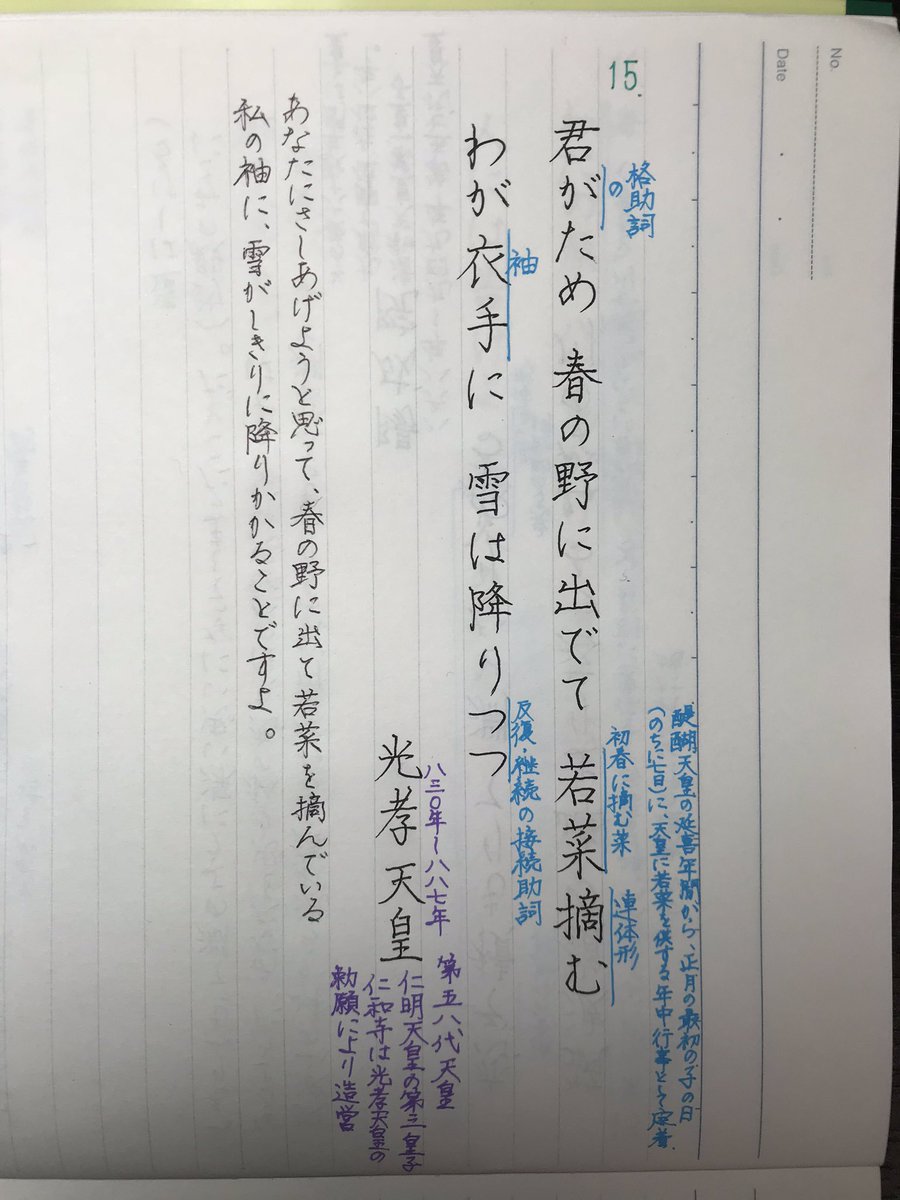 No.
Date
15.
醍醐天皇の延喜年間から、正月の最初の子の日
(のちに七日)に、天皇に若菜を供する年中行事として定着。
格助詞
の
初春に摘む菜
連体形
君がため 春の野に出でて 若菜摘む
袖
反復・継続の接続助詞
わが衣手に 雪は降りつつ
八三〇年~八八七年
光孝天皇
第五八代天皇
仁明天皇の第三皇子
仁和寺は光孝天皇の
勅願により造営
あなたにさしあげようと思って、春の野に出て若菜を摘んでいる
私の袖に、雪がしきりに降りかかることですよ。